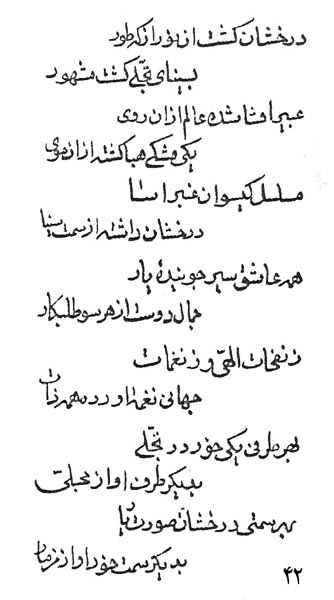 درخشان گشت از نور از که طور
بسینای تجلّے گشت مشهور
عبیر افشا شده عالم ازان روی
یکی مشکے هبا گشته ازان موی
مسلسل گیسوان عنبر اسا
درخشان داشته از سمت سینا
همه عاشق سیر جویندهٔ یار
جمال دوست از هر سو طلبکار
ز نفحات الهی و ز نغمات
جهانی نغمه اورده همه ذات
بهر طرفی یکی خور در تجلّے
بدیگر طرف او از مجلّی
بهر سمتی درخشان صورت یار
بدیگر سمت خور او از
۴۲